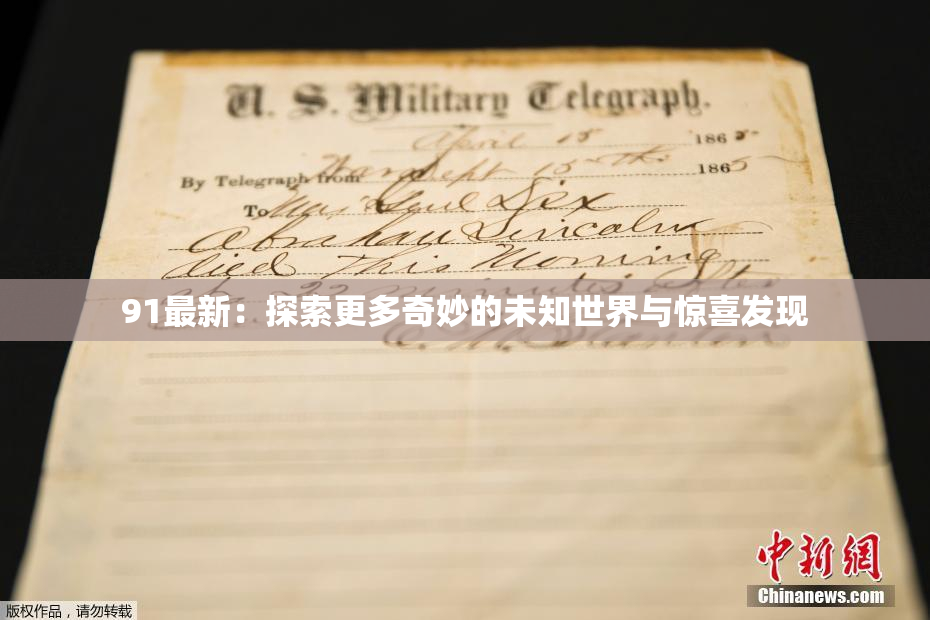 U. S. Military Telegraph.
April 15 1865
By Telegraph from War Dept 15th 1865
To Maj Genl Dix
Abraham Lincoln
died This Morning
at 22 minutes after
91最新：探索更多奇妙的未知世界与惊喜发现
中新网
Chinanews.com
版权作品，请勿转载